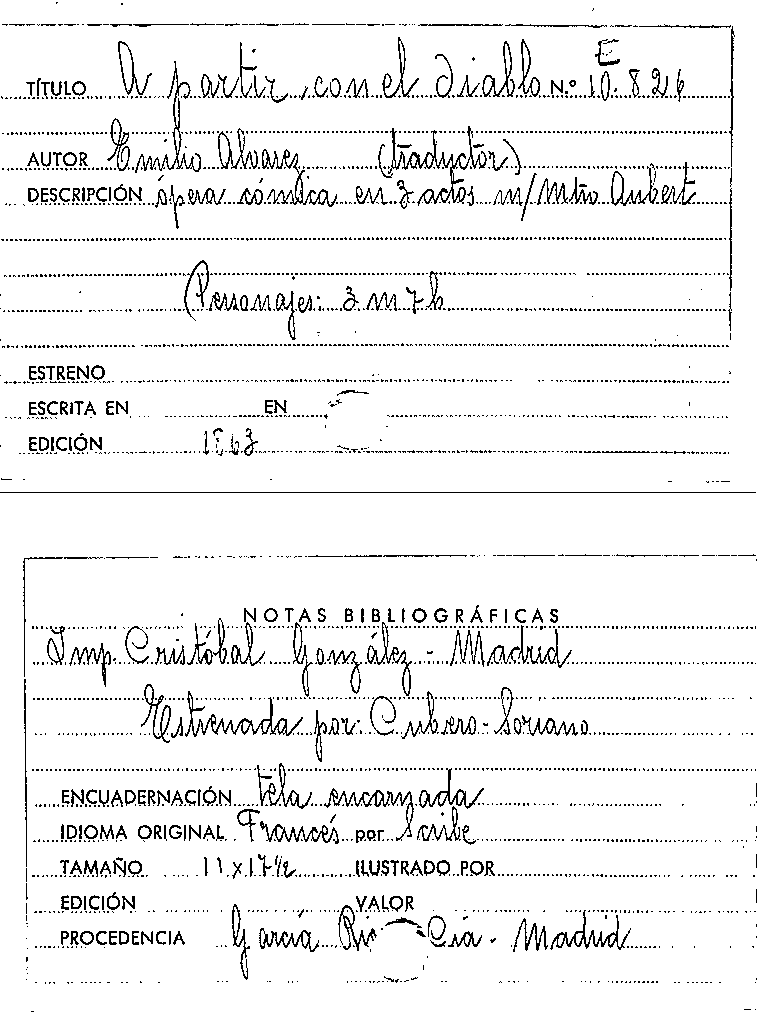 E
TÍTULO A partir con el diablo N.º 10.826
AUTOR Emilio Alvarez (traductor)
DESCRIPCIÓN ópera cómica en 3 actos m/ Mtro Aubert
Personajes: 3 m 7 h
ESTRENO
ESCRITA EN EN
EDICIÓN 1863
NOTAS BIBLIOGRÁFICAS
Imp. Cristóbal González - Madrid
Estrenada por: Cubero-Soriano
ENCUADERNACIÓN tela encarnada
IDIOMA ORIGINAL Francés por Scribe
TAMAÑO 11 x 17 1/2 ILUSTRADO POR
EDICIÓN VALOR
PROCEDENCIA García Rico Cía - Madrid